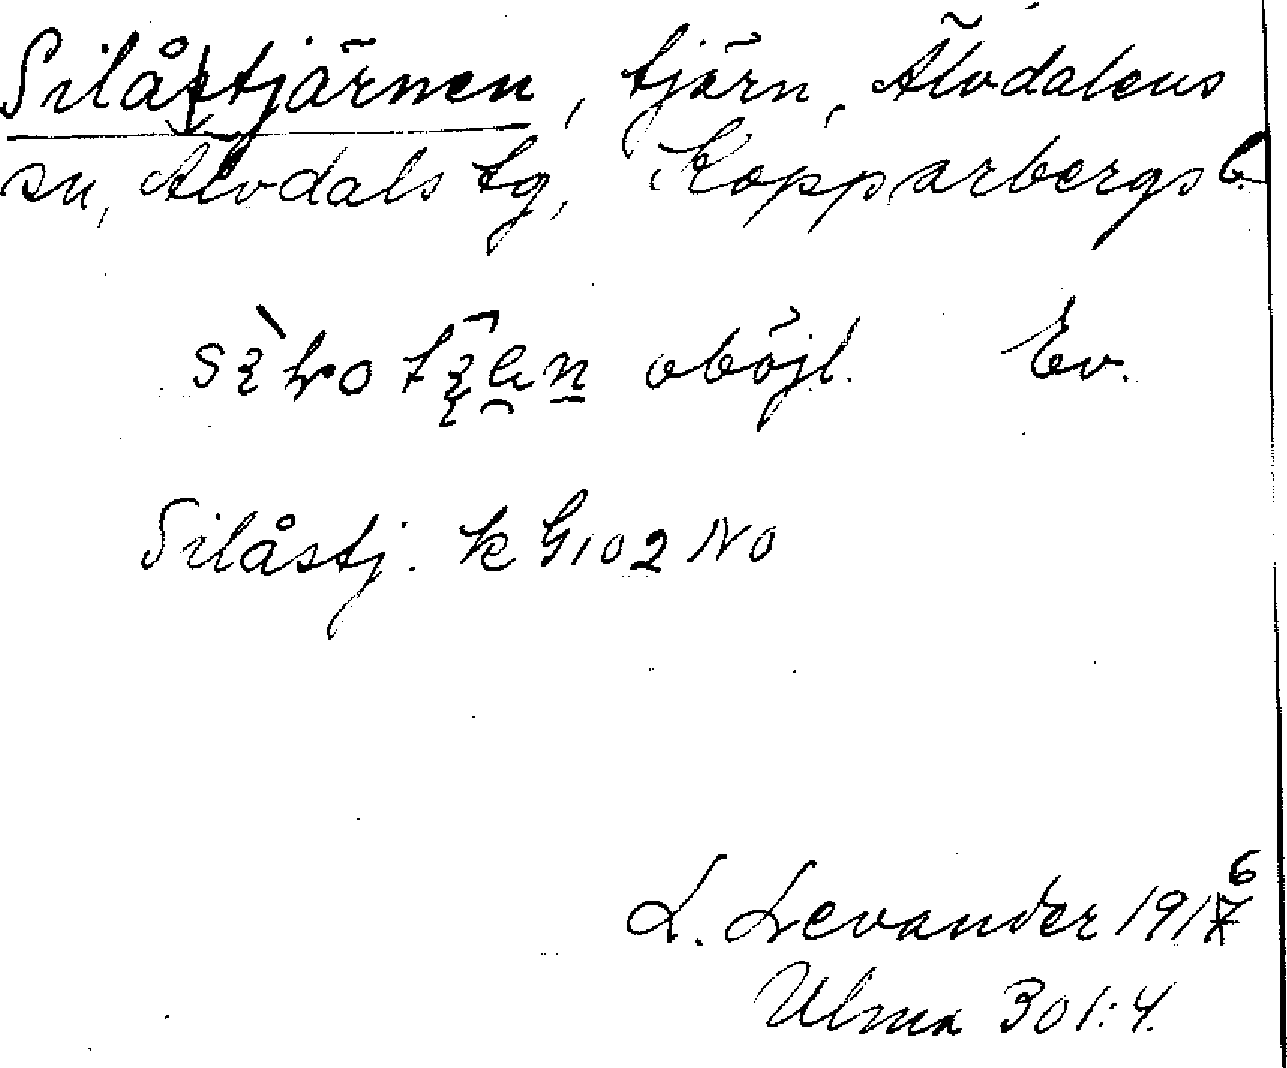 Silåstjärnen, tjärn, Älvdalens
sn, Älvdals tg, Kopparbergs l.
oböjl. Ev.
Silåstj. k G102 NO
L. Levander 1916
Ulma 301:4.